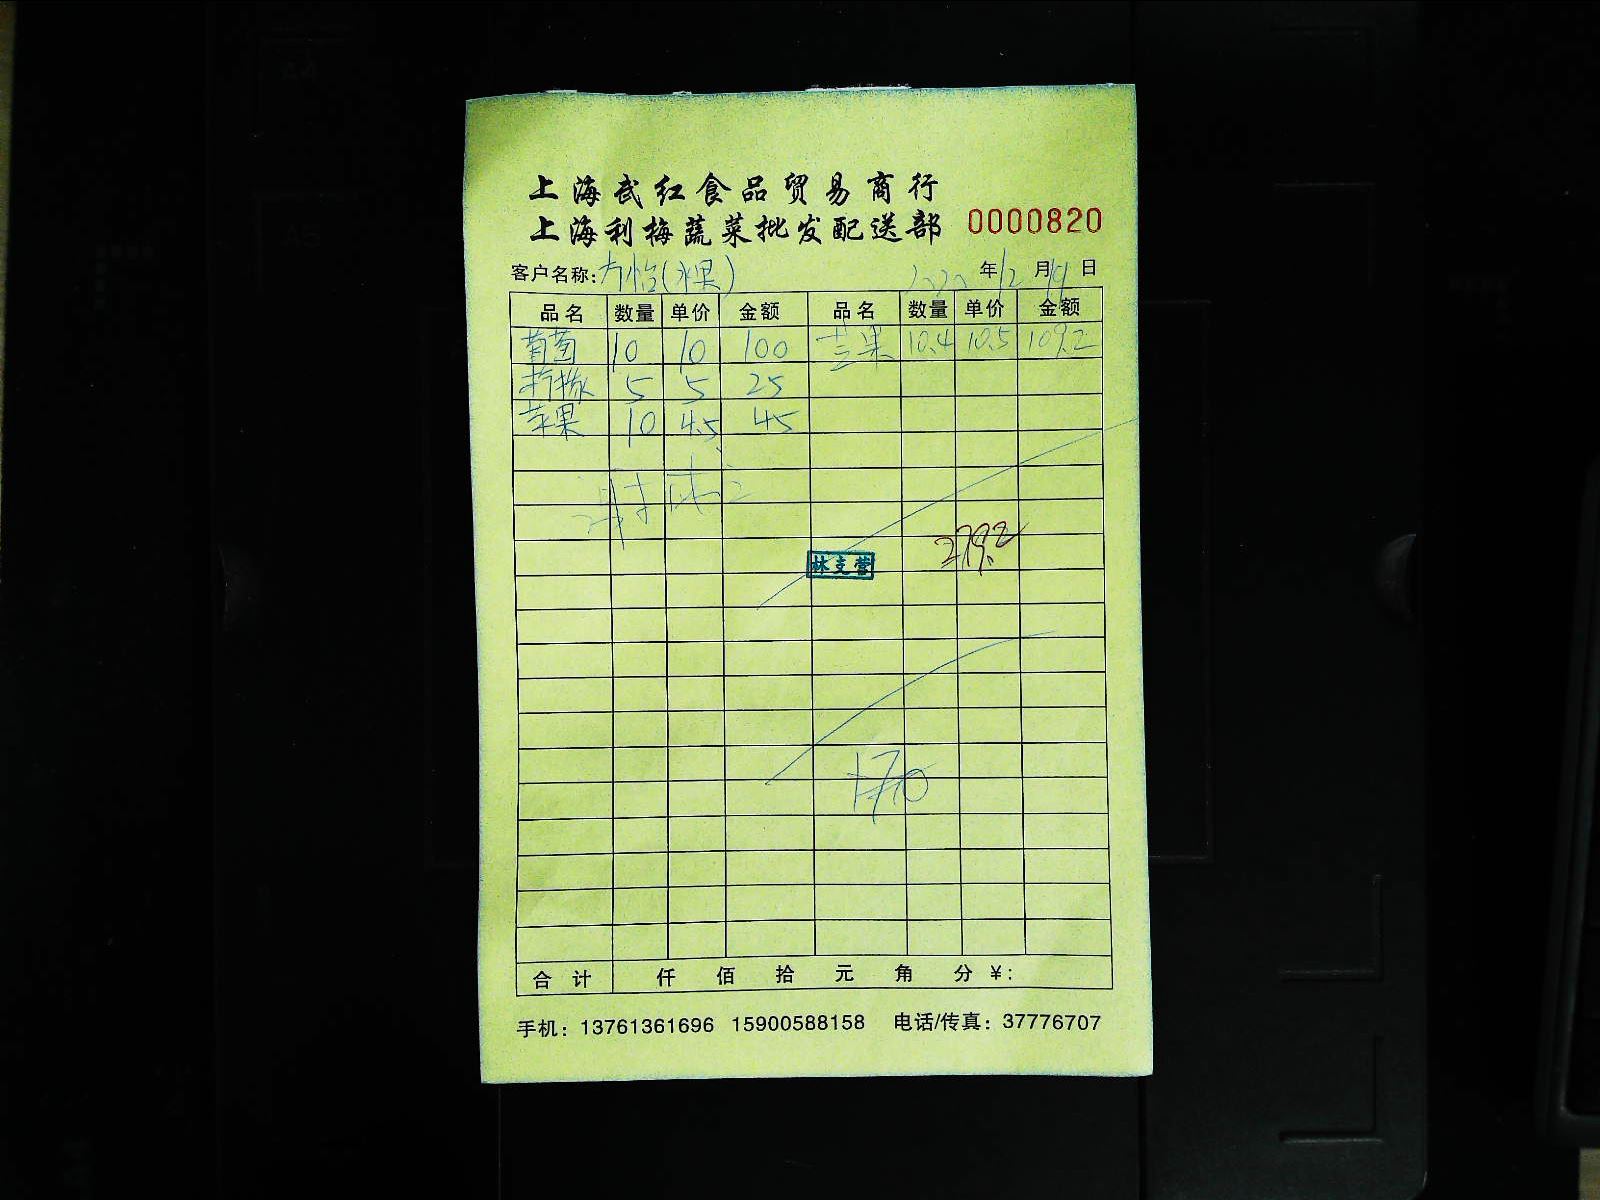 上海武红食品贸易商行
上海利梅蔬菜批发配送部 0000820
客户名称: 方怡(水果) 年12月19日
品名 数量 单价 金额 品名 数量 单价 金额
葡萄 10 10 100 苹果 10.4 10.5 109.2
5 5 25
苹果 10 4.5 45
林支营 279.2
170
合计 仟 佰 拾 元 角 分 ¥:
手机: 13761361696 15900588158 电话/传真: 37776707